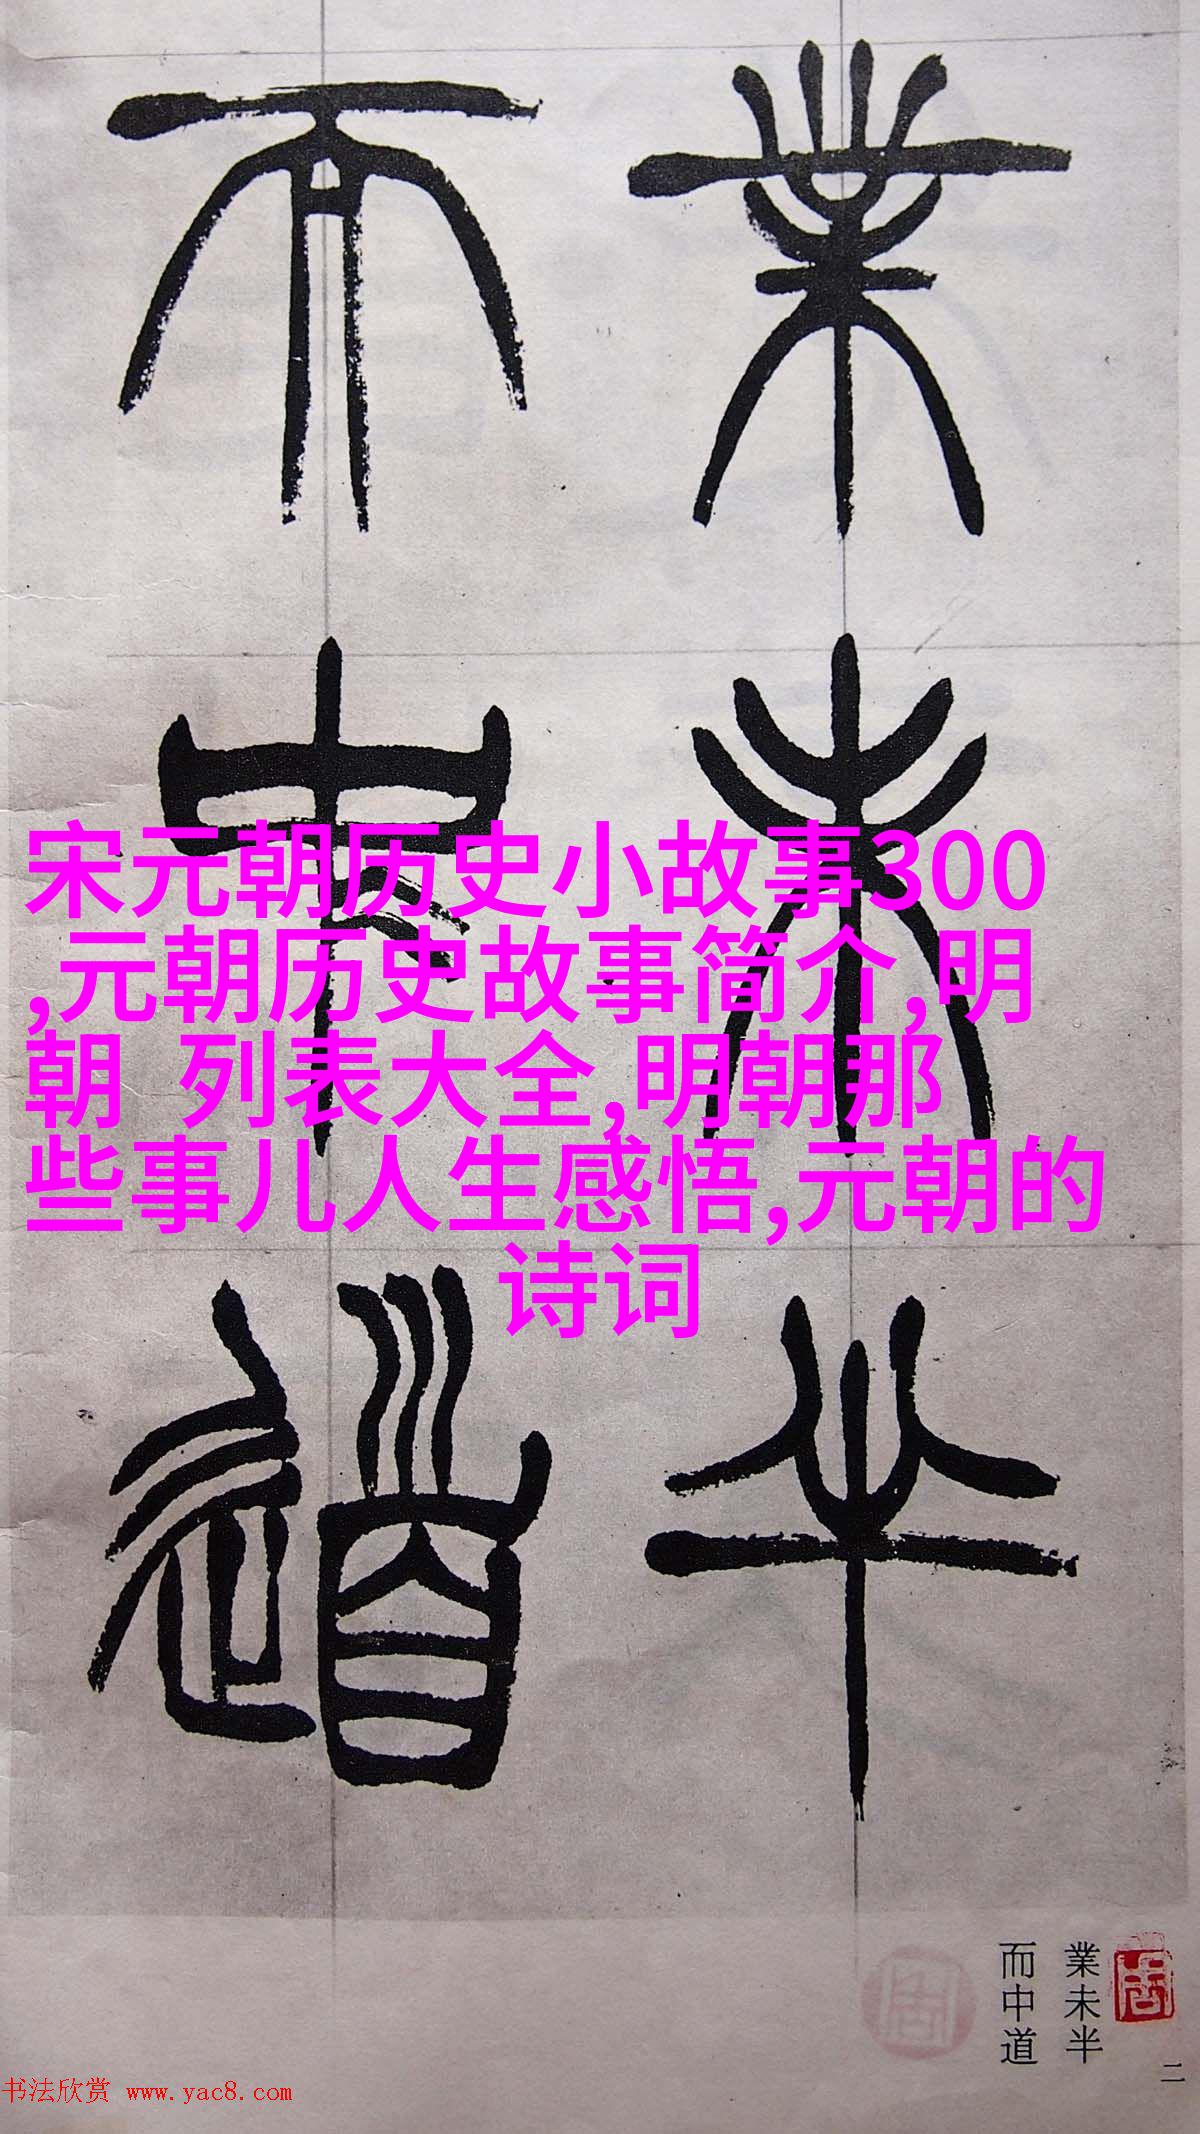 業未半
而中道
宋元朝历史小故事300
,元朝历史故事简介,明
朝 列表大全,明朝那
些事儿人生感悟,元朝的
诗词
業未半
而中道
二
书法欣赏 www.yac8.com